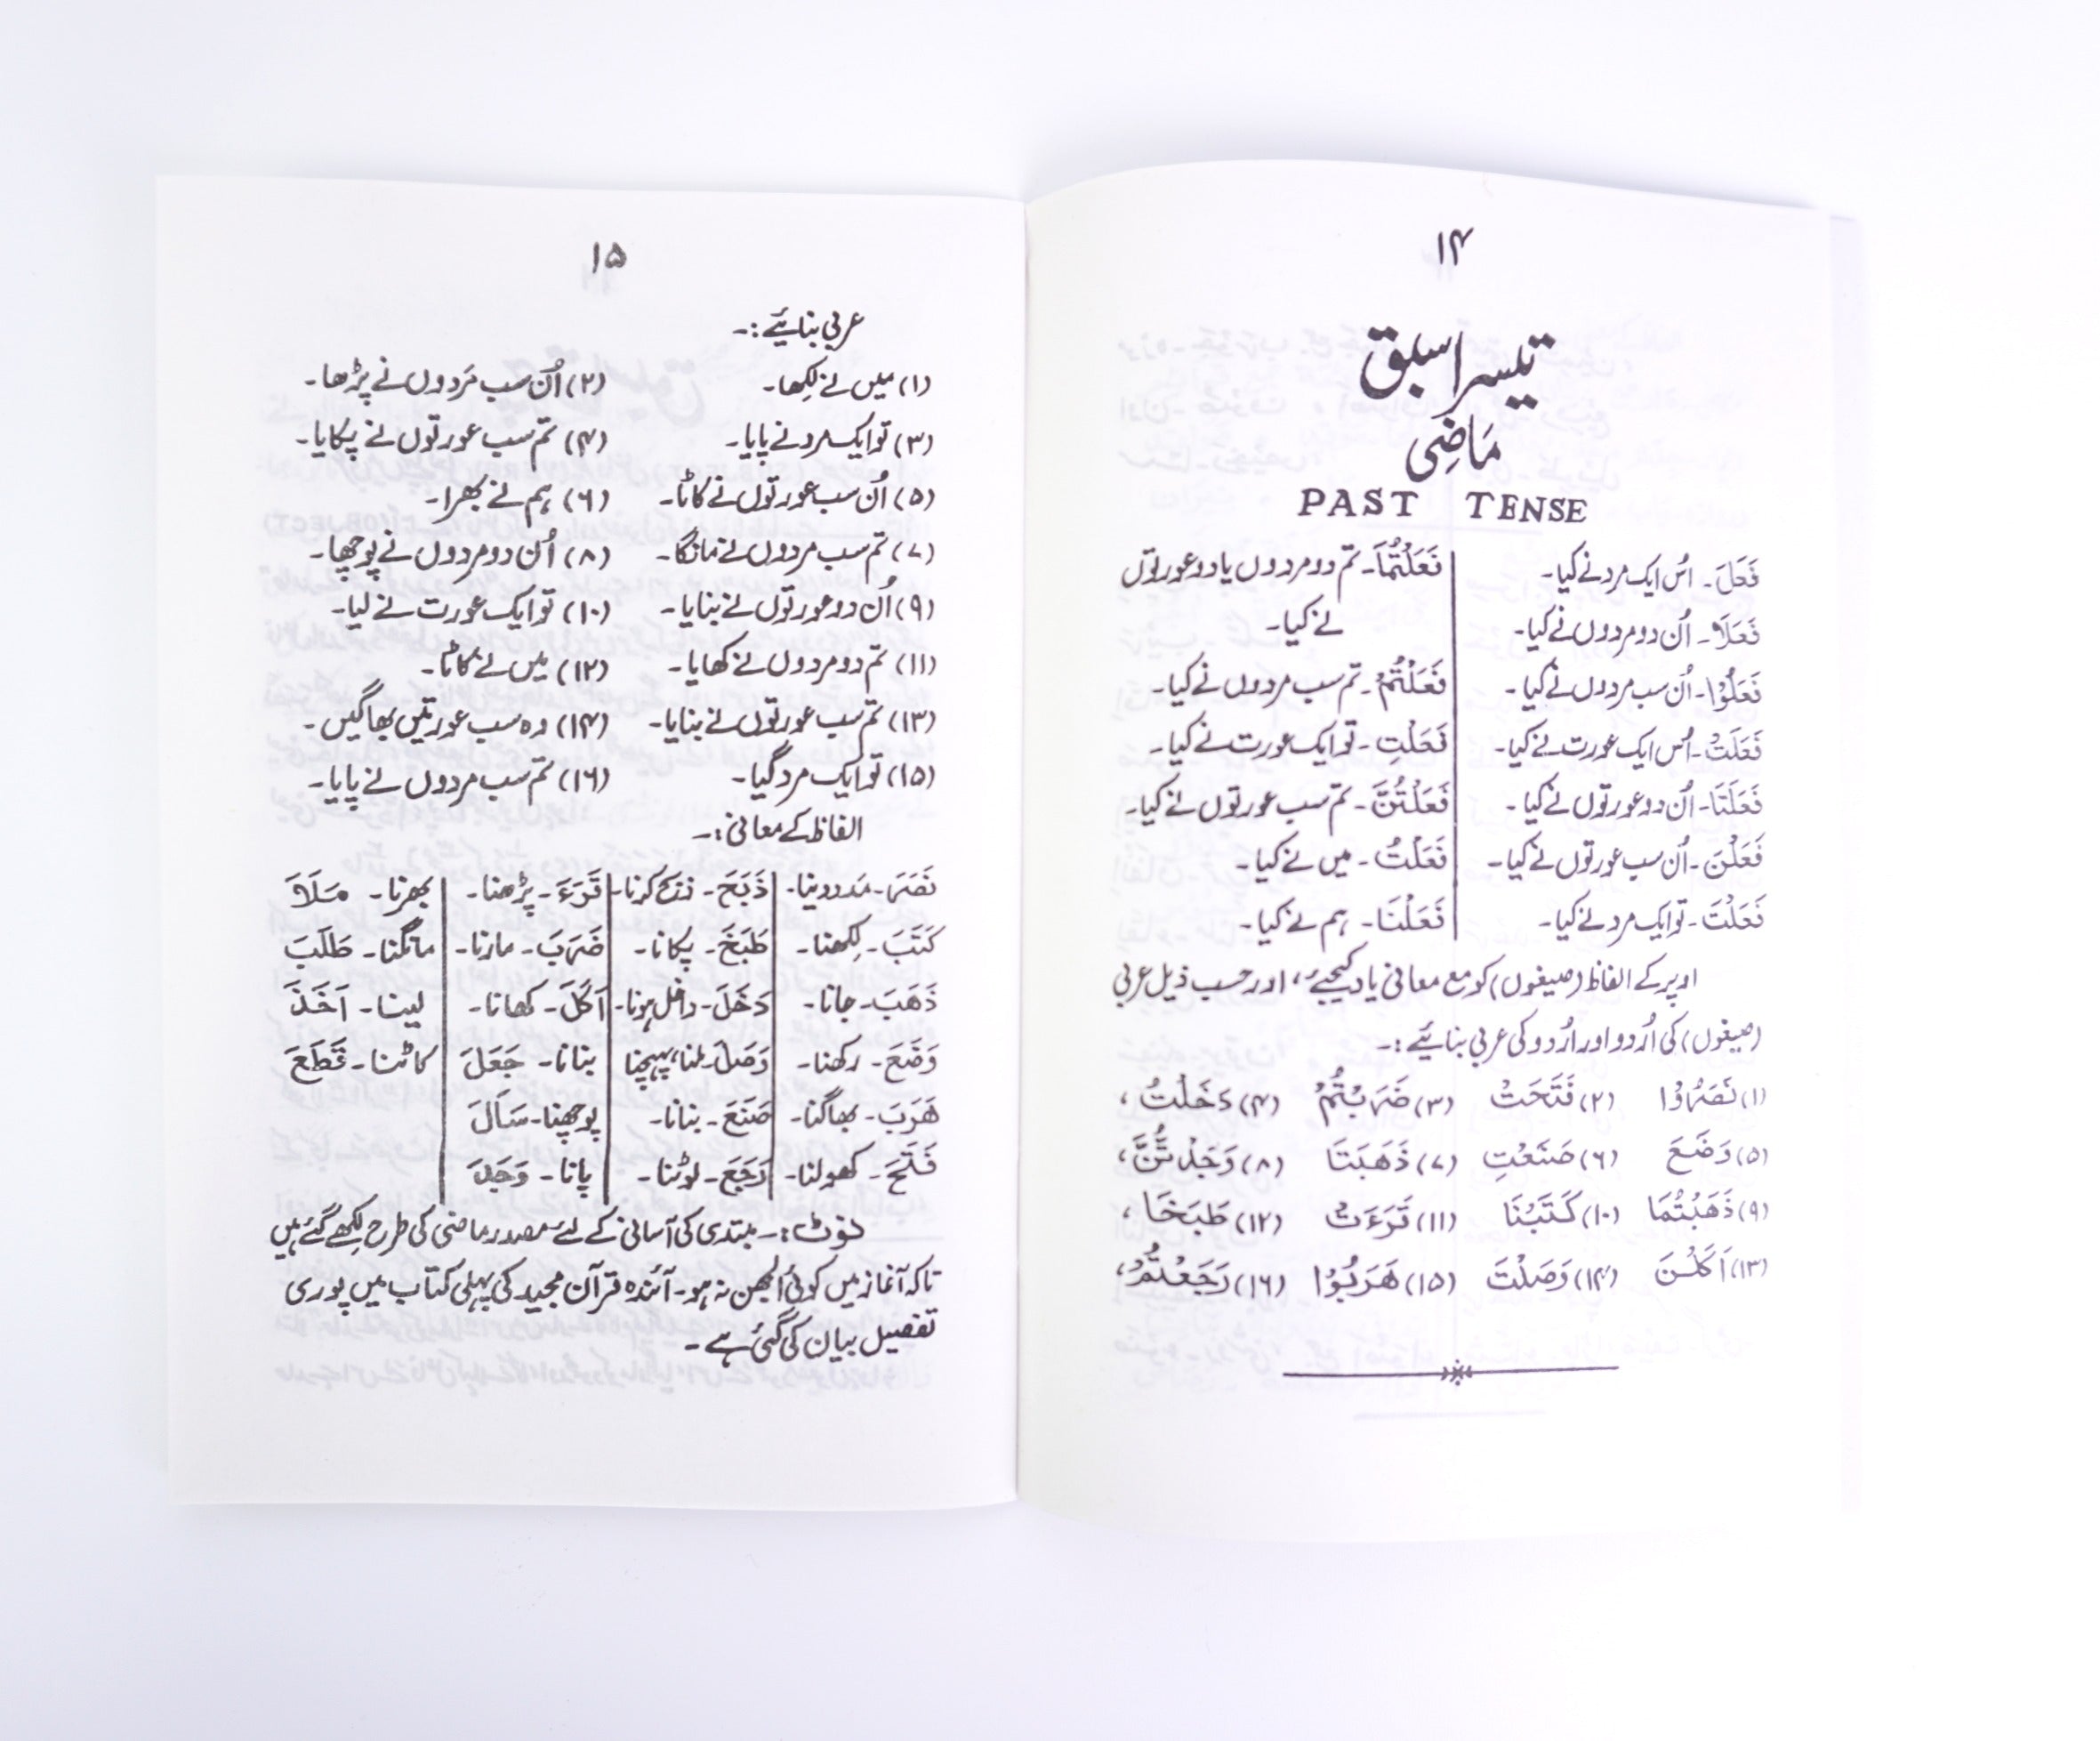 ۱۴
تیسرا سبق
مَاضِی
PAST TENSE
فَعَلَ۔ اُس ایک مرد نے کیا۔ فَعَلْتُمَا۔ تم دو مردوں یا دو عورتوں
نے کیا۔
فَعَلَا۔ اُن دو مردوں نے کیا۔
فَعَلُوْا۔ اُن سب مردوں نے کیا۔ فَعَلْتُمْ۔ تم سب مردوں نے کیا۔
فَعَلَتْ۔ اُس ایک عورت نے کیا۔ فَعَلْتِ۔ تو ایک عورت نے کیا۔
فَعَلَتَا۔ اُن دو عورتوں نے کیا۔ فَعَلْتُنَّ۔ تم سب عورتوں نے کیا۔
فَعَلْنَ۔ اُن سب عورتوں نے کیا۔ فَعَلْتُ۔ میں نے کیا۔
فَعَلْتَ۔ تو ایک مرد نے کیا۔ فَعَلْنَا۔ ہم نے کیا۔
اوپر کے الفاظ (صیغوں) کو مع معانی یاد کیجیے، اور حسب ذیل عربی
(صیغوں) کی اُردو اور اُردو کی عربی بنائیے:۔
(۱) نَصَرُوْا (۲) فَتَحَتْ (۳) ضَرَبْتُمْ (۴) دَخَلْتُ،
(۵) وَضَعَ (۶) صَنَعْتِ (۷) ذَهَبَتَا (۸) وَجَدْتُنَّ،
(۹) ذَهَبْتُمَا (۱۰) كَتَبْنَا (۱۱) قَرَءَتْ (۱۲) طَبَخَا،
(۱۳) اَكَلْنَ (۱۴) وَصَلْتَ (۱۵) هَرَبُوْا (۱۶) رَجَعْتُمْ،
۱۵
عربی بنائیے:۔
(۱) میں نے لکھا۔ (۲) اُن سب مَردوں نے پڑھا۔
(۳) تو ایک مرد نے پایا۔ (۴) تم سب عورتوں نے پکایا۔
(۵) اُن سب عورتوں نے کاٹا۔ (۶) ہم نے بھرا۔
(۷) تم سب مردوں نے مانگا۔ (۸) اُن دو مردوں نے پوچھا۔
(۹) اُن دو عورتوں نے بنایا۔ (۱۰) تو ایک عورت نے لیا۔
(۱۱) تم دو مردوں نے کھایا۔ (۱۲) میں نے کاٹا۔
(۱۳) تم سب عورتوں نے بنایا۔ (۱۴) وہ سب عورتیں بھاگیں۔
(۱۵) تو ایک مرد گیا۔ (۱۶) تم سب مردوں نے پایا۔
الفاظ کے معانی:۔
نَصَرَ۔ مدد دینا۔ ذَبَحَ۔ ذبح کرنا۔ قَرَءَ۔ پڑھنا۔ بھرنا۔ مَلَاَ
كَتَبَ۔ لِکھنا۔ طَبَخَ۔ پکانا۔ ضَرَبَ۔ مارنا۔ مانگنا۔ طَلَبَ
ذَهَبَ۔ جانا۔ دَخَلَ۔ داخل ہونا۔ اَكَلَ۔ کھانا۔ لینا۔ اَخَذَ
وَضَعَ۔ رکھنا۔ وَصَلَ۔ ملنا، پہنچنا بنانا۔ جَعَلَ کاٹنا۔ قَطَعَ
هَرَبَ۔ بھاگنا۔ صَنَعَ۔ بنانا۔ پوچھنا۔ سَاَلَ
فَتَحَ۔ کھولنا۔ رَجَعَ۔ لوٹنا۔ پانا۔ وَجَدَ
نوٹ:۔ مبتدی کی آسانی کے لئے مصدر ماضی کی طرح لِکھے گئے ہیں
تاکہ آغاز میں کوئی اُلجھن نہ ہو۔ آئندہ قرآن مجید کی پہلی کتاب میں پوری
تفصیل بیان کی گئی ہے۔